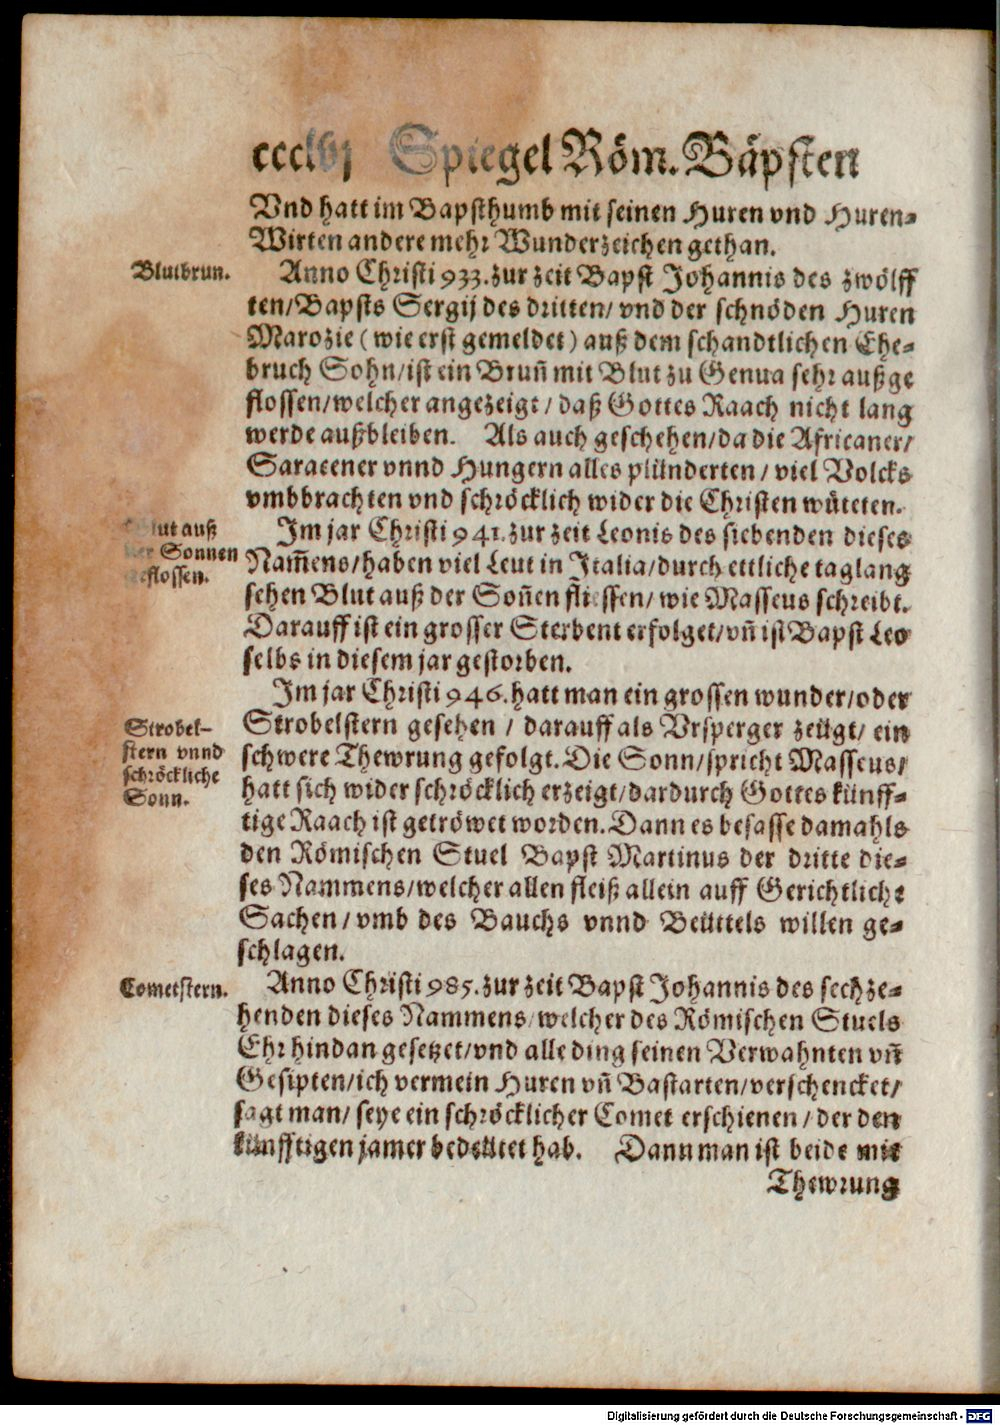 ccclvj Spiegel Röm. Bäpsten
Vnd hatt im Bapsthumb mit seinen Huren vnd Huren-
Wirten andere mehr Wunderzeichen gethan.
Blutbrun.
Anno Christi 933. zur zeit Bapst Johannis des zwölff
ten/ Bapsts Sergij des dritten/ vnd der schnöden Huren
Marozie ( wie erst gemeldet ) auß dem schandtlichen Ehe-
bruch Sohn/ ist ein Brun̄ mit Blut zu Genua sehr außge
flossen/ welcher angezeigt/ daß Gottes Raach nicht lang
werde außbleiben. Als auch geschehen/ da die Africaner/
Saracener vnnd Hungern alles plünderten/ viel Volcks
vmbbrachten vnd schröcklich wider die Christen wüteten.
Blut auß
der Sonnen
geflossen.
Im jar Christi 941. zur zeit Leonis des siebenden dieses
Nam̄ens/ haben viel Leut in Italia/ durch ettliche tag lang
sehen Blut auß der Son̄en fliessen/ wie Masseus schreibt.
Darauff ist ein grosser Sterbent erfolget/ vn̄ ist Bapst Leo
selbs in diesem jar gestorben.
Strobel-
stern vnnd
schröckliche
Sonn.
Im jar Christi 946. hatt man ein grossen wunder/ oder
Strobelstern gesehen / darauff als Vrsperger zeügt/ ein
schwere Thewrung gefolgt. Die Sonn/ spricht Masseus/
hatt sich wider schröcklich erzeigt/ dardurch Gottes künff-
tige Raach ist getröwet worden. Dann es besasse damahls
den Römischen Stuel Bapst Martinus der dritte die-
ses Nammens/ welcher allen fleiß allein auff Gerichtliche
Sachen/ vmb des Bauchs vnnd Beüttels willen ge-
schlagen.
Cometstern.
Anno Christi 985. zur zeit Bapst Johannis des sechze-
henden dieses Nammens/ welcher des Römischen Stuels
Ehr hindan gesetzet/ vnd alle ding seinen Verwahnten vn̄
Gesipten/ ich vermein Huren vn̄ Bastarten/ verschencket/
sagt man/ seye ein schröcklicher Comet erschienen/ der den
künfftigen jamer bedeütet hab. Dann man ist beide mit
Thewrung
Digitalisierung gefördert durch die Deutsche Forschungsgemeinschaft - DFG